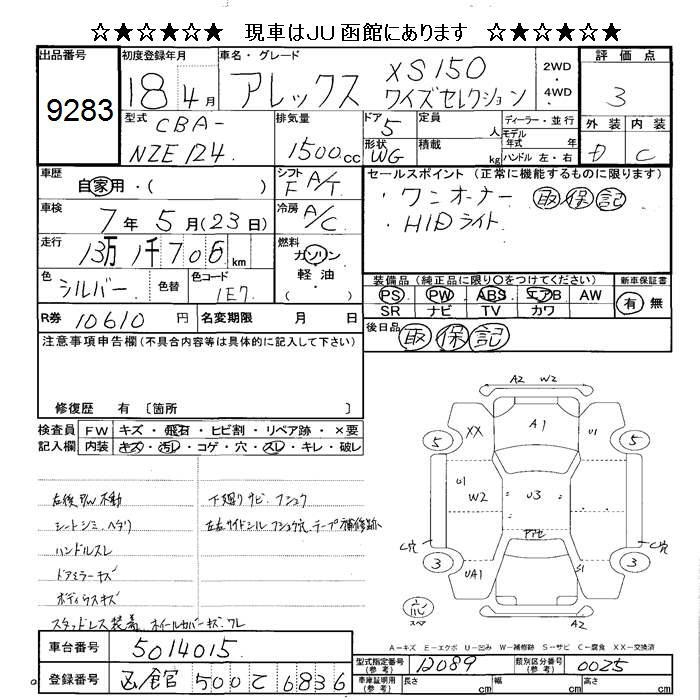 ☆★☆★☆★ 現車はJU函館にあります ☆★☆★☆★
出品番号 9283
初度登録年月 18 4月
車名・グレード アレックス XS150 ワイズセレクション
2WD ・ 4WD
評価点 3
外装 内装
D C
型式 CBA- NZE124
排気量 1500cc
ドア 5
形状 WG
定員 人
積載 kg
ディーラー・並行
モデル年式 年式
ハンドル 左・右
車歴 自家用・( )
シフト F A/T
車検 7年5月(23日)
冷房 A/C
走行 13万1千706km
燃料 ガソリン ・ 軽油 ( )
色 シルバー 色替 色コード 1E7
R券 10610円 名変期限 月 日
セールスポイント (正常に機能するものに限ります)
・ワンオーナー 取 保 記
・HIDライト
装備品 (純正品に限り○をつけてください)
PS PW ABS エアB AW
SR ナビ TV カワ
新車保証書 有 無
後日品 取 保 記
注意事項申告欄(不具合内容等は具体的に記入して下さい)
修復歴 有 〔箇所
検査員記入欄
FW キズ・飛石・ヒビ割・リペア跡・×要
内装 キズ・汚レ・コゲ・穴・スレ・キレ・破レ
左後P/W不動
シートシミ、ヘタリ
ハンドルスレ
ドアミラーキズ
ボディウスキズ
スタッドレス装着、ホイールカバーキズ、ワレ
下廻りサビ、フショク
左右サイドシルフショク穴、テープ補修跡
A2 W2
XX A1 U1
5 5
U1 W2 U3
アアセ
C穴 C穴
3 3
UA1 S1
応 スペア
A2
A－キズ E－エクボ U－凹み W－補修跡 S－サビ C－腐食 XX－交換済
車台番号 5014015
登録番号 函館 500 て 6836
型式指定番号(参考) 12089
類別区分番号(参考) 0025
車庫証明用(参考) 長さ cm 幅 cm 高さ cm